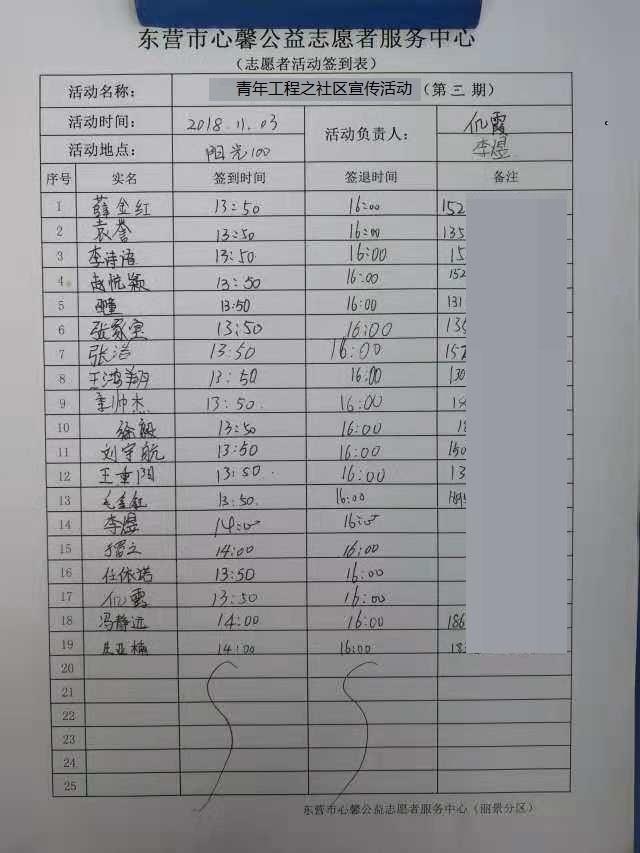 东营市心馨公益志愿者服务中心
（志愿者活动签到表）
活动名称： 青年工程之社区宣传活动（第三期）
活动时间： 2018.11.03 活动负责人：
活动地点： 阳光100 李煜
序号 实名 签到时间 签退时间 备注
1 薛金红 13:50 16:00 152
2 袁誉 13:50 16:00 135
3 李诗语 13:50 16:00 15
4 赵悦颖 13:50 16:00 152
5 13:50 16:00 131
6 张家宝 13:50 16:00 135
7 张浩 13:50 16:00 152
8 王鸿翔 13:50 16:00 130
9 帅杰 13:50. 16:00
10 徐毅 13:50 16:00 18
11 刘宇航 13:50 16:00 150
12 王重阳 13:50. 16:00 13
13 毛金红 13:50. 16:00
14 李煜 14:00 16:00
15 14:00 16:00
16 任依诺 13:50 16:00
17 13:50 16:00
18 冯静远 14:00 16:00 186
19 14:00 16:00 18
20
21
22
23
24
25
东营市心馨公益志愿者服务中心（丽景分区）